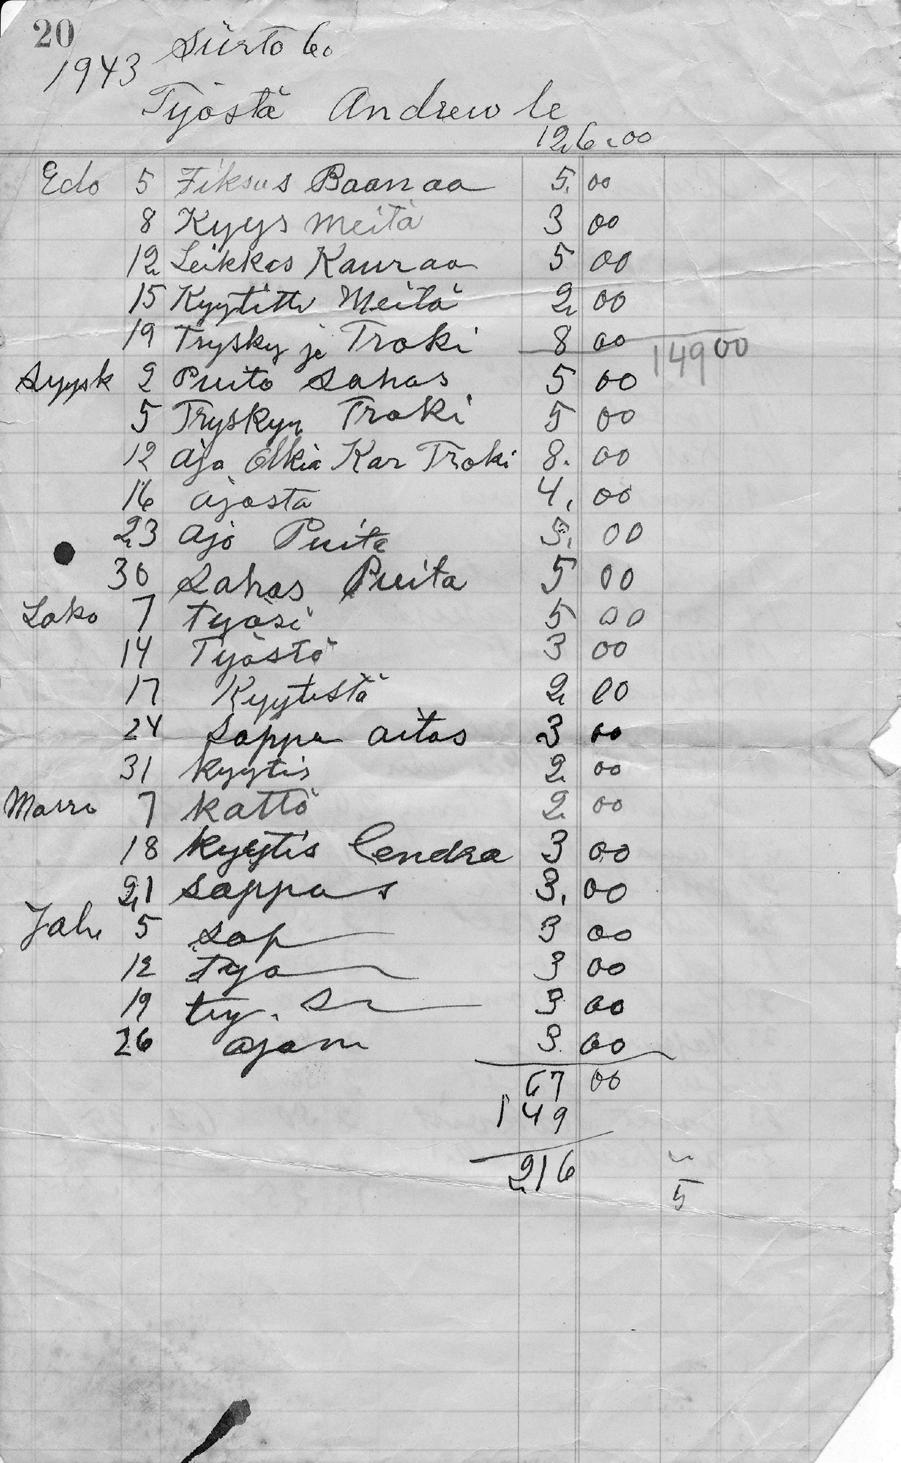 20
1943 Siirto 60
Työstä Andrew le
126.00
Elo 5 Fiksas Baanaa 5.00
8 Kyys meitä 3 00
12 Leikkas Kauraa 5 00
15 Kyytitti Meitä 2 00
19 Trysky ja Troki 8 00
149 00
Syysk 2 Puito Sahas 5 00
5 Tryskyy Troki 5 00
12 ajo Olkia Kar Troki 8. 00
16 ajosta 4. 00
23 ajo Puita 3. 00
30 Sahas Puita 5 00
Loko 7 työsi 5 00
14 Työstö 3 00
17 Kyytistä 2 00
24 Soppa aitas 3 00
31 kyytis 2 00
Marra 7 kattö 2 00
18 kyytis Cendra 3 00
21 Soppas 3. 00
5 Sop 3 00
12 Työ 3 00
19 ty. 3 00
26 3 00
67 00
149
216
5